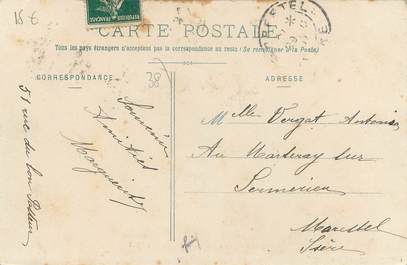 18 €
CARTE POSTALE
Tous les pays étrangers n'acceptent pas la correspondance au recto (Se renseigner à la Poste)
CORRESPONDANCE
38
ADRESSE
Souvenir
Amitiés
Marguerite
51 rue du bon Pasteur
Melle Vergat Antonia
Au Marteray sur
Sermérieu
Morestel
Isère